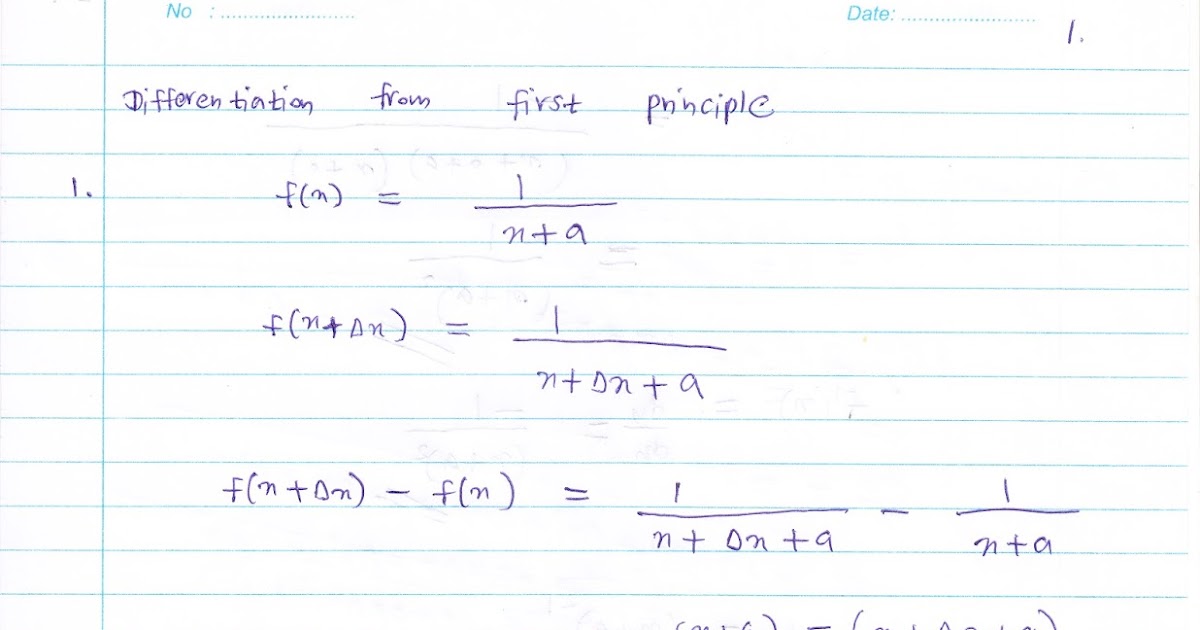 No : ........................ Date: ........................
1.
Differentiation from first principle
1. f(x) = 1/(x+a)
f(x+Δx) = 1/(x+Δx+a)
f(x+Δx) - f(x) = 1/(x+Δx+a) - 1/(x+a)